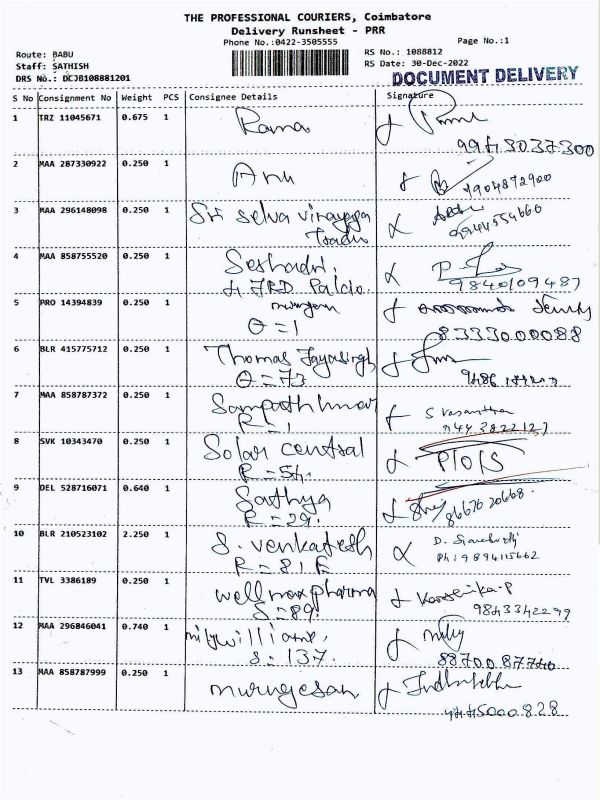 THE PROFESSIONAL COURIERS, Coimbatore
Delivery Runsheet - PRR
Phone No.:0422-3505555
Page No.:1
Route: BABU
RS No.: 1088812
Staff: SATHISH
RS Date: 30-Dec-2022
DRS No.: DCJB108881201
DOCUMENT DELIVERY
S No Consignment No Weight PCS Consignee Details Signature
1 TRZ 11045671 0.675 1 Rama
2 MAA 287330922 0.250 1 Anu
7904872900
3 MAA 296148098 0.250 1 Sri Selva Vinayaga
9944554660
4 MAA 858755520 0.250 1 Seshadri
9840109487
5 PRO 14394839 0.250 1 murugan
8333000088
6 BLR 415775712 0.250 1 Thomas Jayasingh
7 MAA 858787372 0.250 1 Sampath Kumar S Vasantha
R = 1
8 SVK 10343470 0.250 1 Solar central P/O/S
R = 54.
9 DEL 528716071 0.640 1 Sathya
R = 29. 86676 20668.
10 BLR 210523102 2.250 1 S. Venkatesh D.
R = 81 F Ph: 9894115662
11 TVL 3386189 0.250 1 wellmaxpharma Kaushika.P
S = 89. 9843342299
12 MAA 296846041 0.740 1
S. = 137. 8870087740
13 MAA 858787999 0.250 1 murugesan